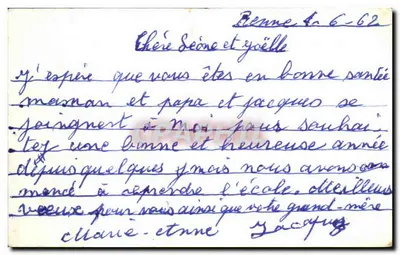 Renne 1-6-62
Chère Léone et Joëlle
J'espère que vous êtes en bonne santée
maman et papa et jacques se
joignent à moi pour souhai-
tez une bonne et heureuse année
dépuis quelques mois nous avons
mencé à reprendre l'école. Meilleurs
veux pour vous ainsi que votre grand-mère
Marie-Anne Jacques